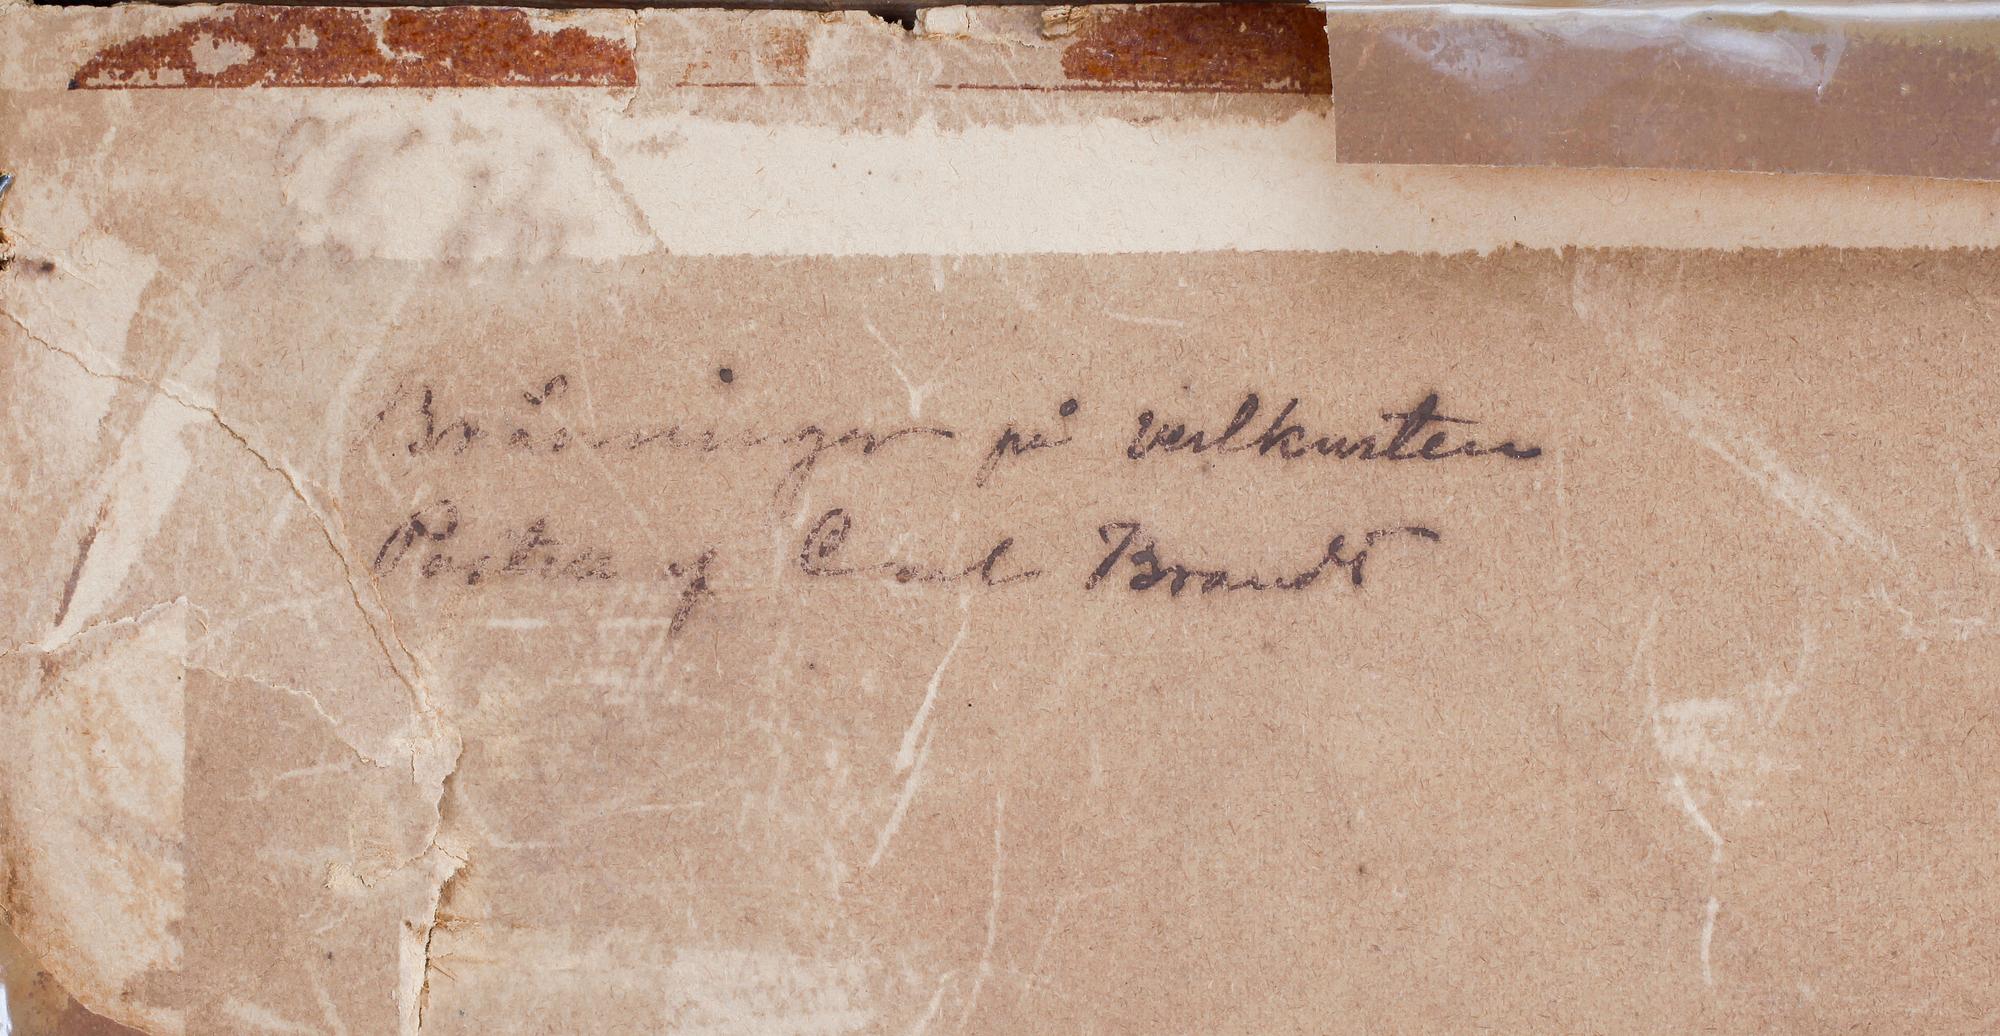 Bränningar på vestkusten
Pastell af Carl Brandt